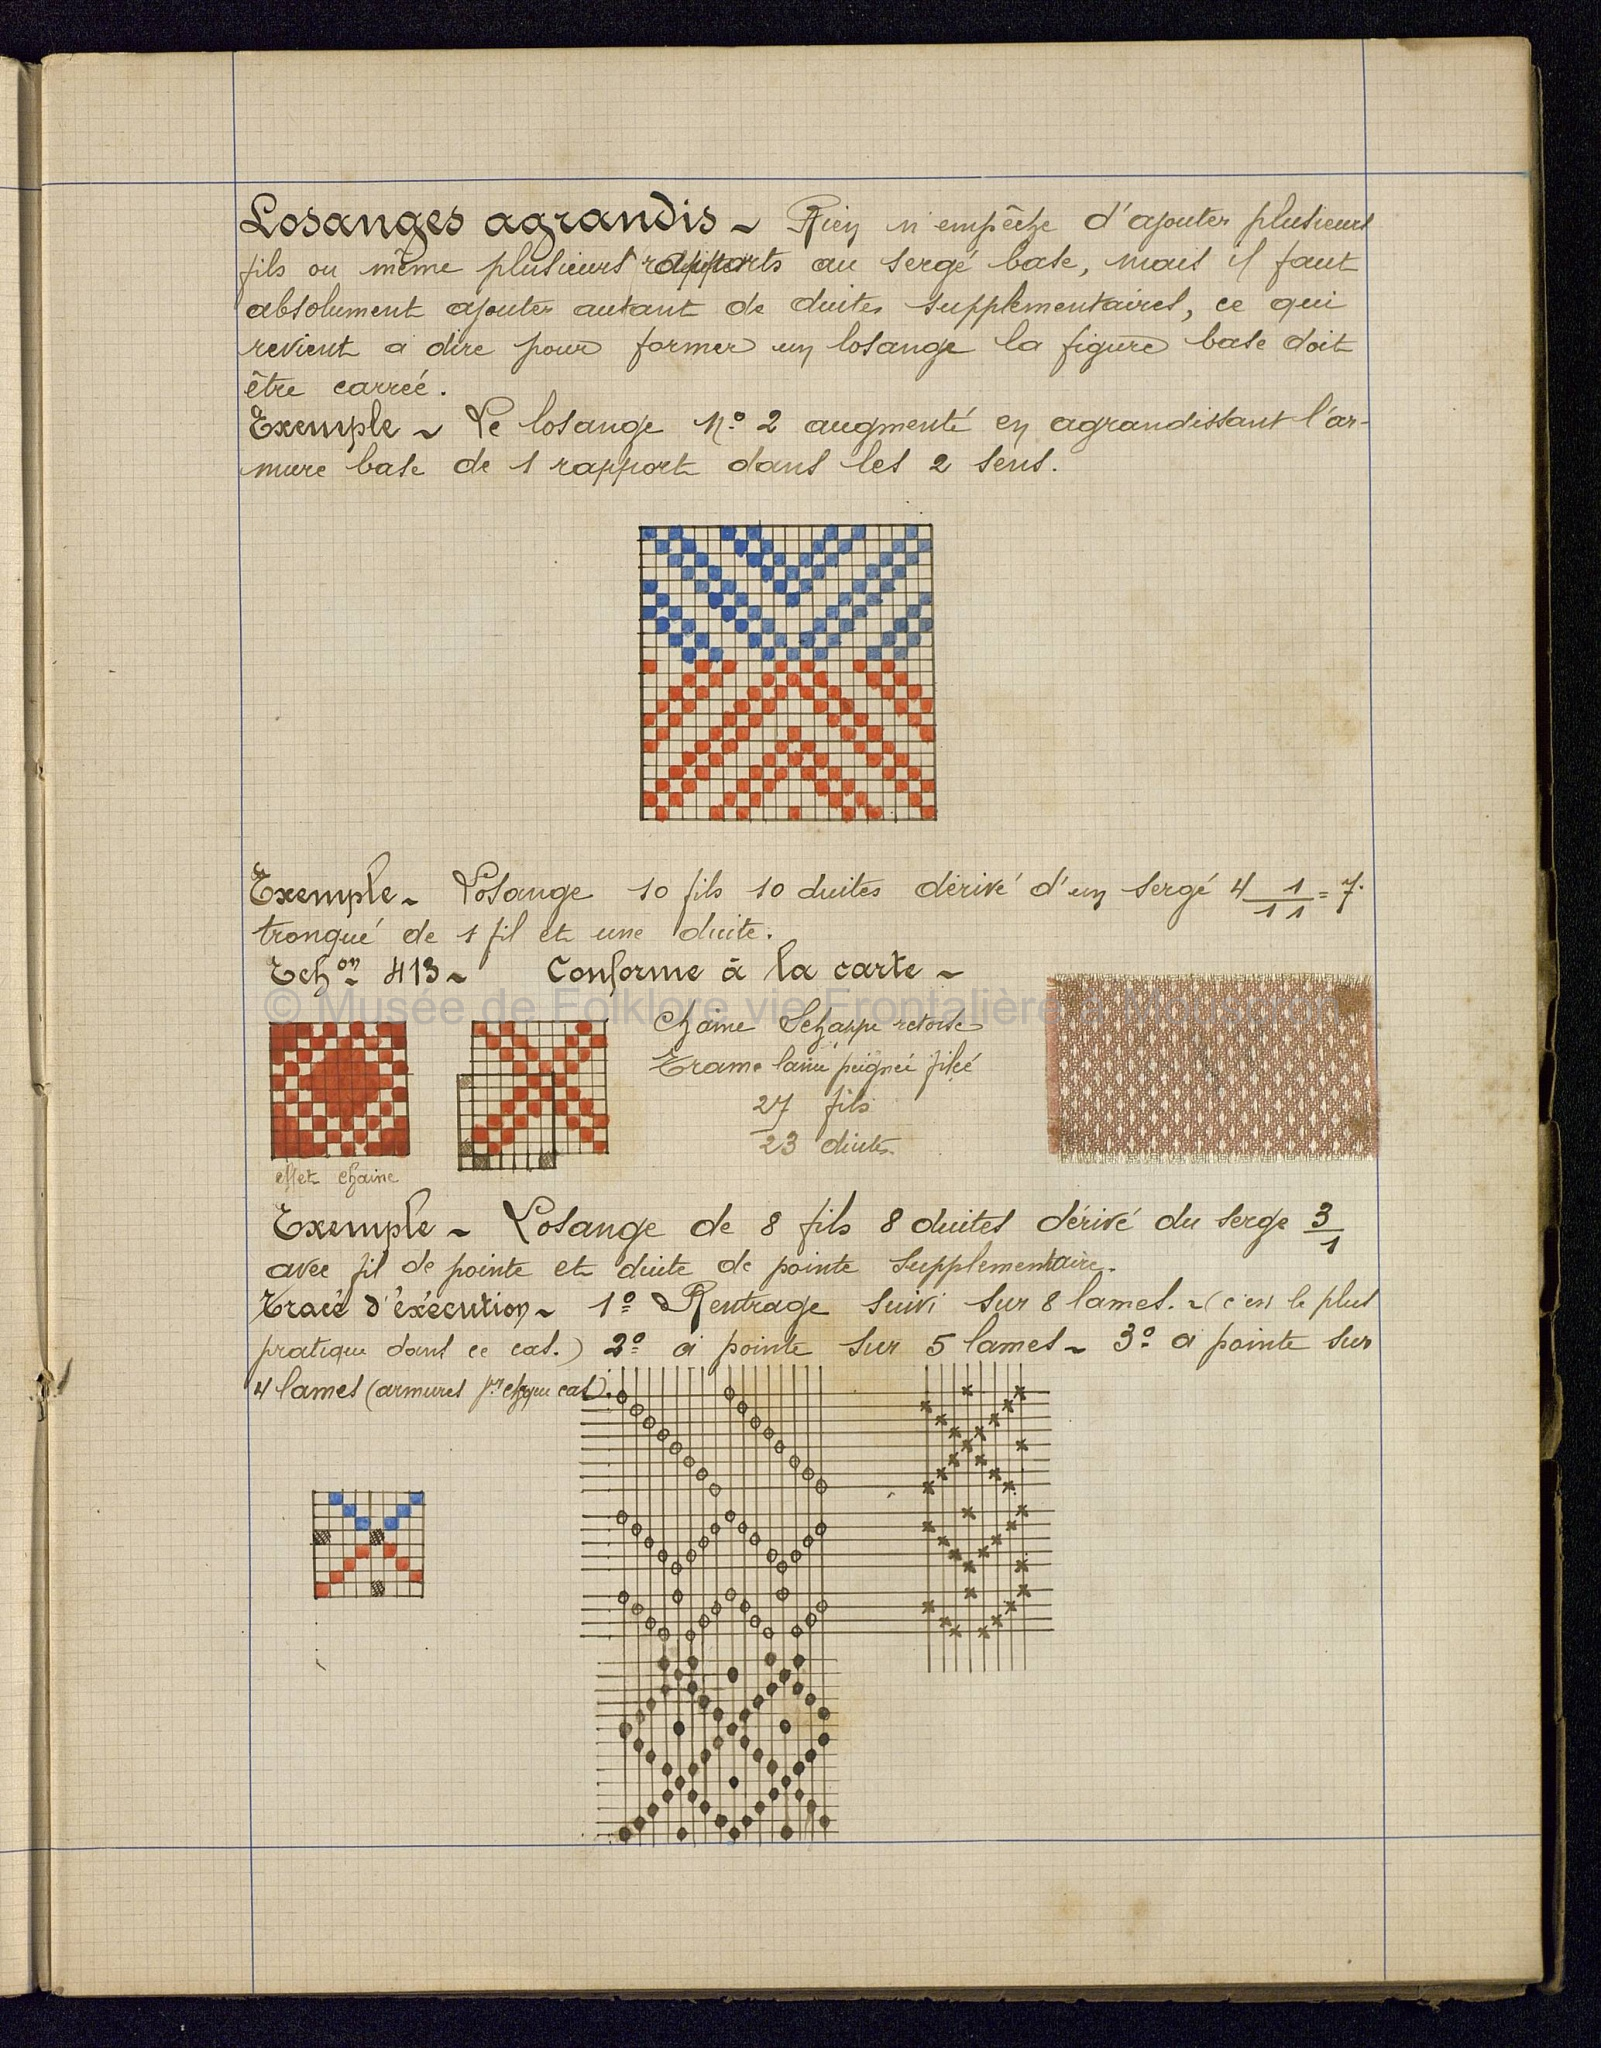 Losanges agrandis ~ Rien n'empêche d'ajouter plusieurs
fils ou même plusieurs rapports au sergé base, mais il faut
absolument ajouter autant de duites supplementaires, ce qui
revient a dire pour former un losange la figure base doit
être carrée.
Exemple ~ Le losange N.o 2 augmenté en agrandissant l'ar-
mure base de 1 rapport dans les 2 sens.
Exemple ~ Losange 10 fils 10 duites dérivé d'un sergé 4 1/1 1 = 7.
tronqué de 1 fil et une duite.
Echon 413 ~ Conforme à la carte ~
© Musée de Folklore vie Frontalière à Mouscron
Chaine Schappe retorse
Trame laine peignée filée
27 fils
23 duites
effet chaine
Exemple ~ Losange de 8 fils 8 duites dérivé du serge 3/1
avec fil de pointe et duite de pointe supplementaire.
Tracé d'éxécution ~ 1o Rentrage suivi sur 8 lames. ~ (c'est le plus
pratique dans ce cas.) 2o à pointe sur 5 lames ~ 3o a pointe sur
4 lames (armures pr chque cas).